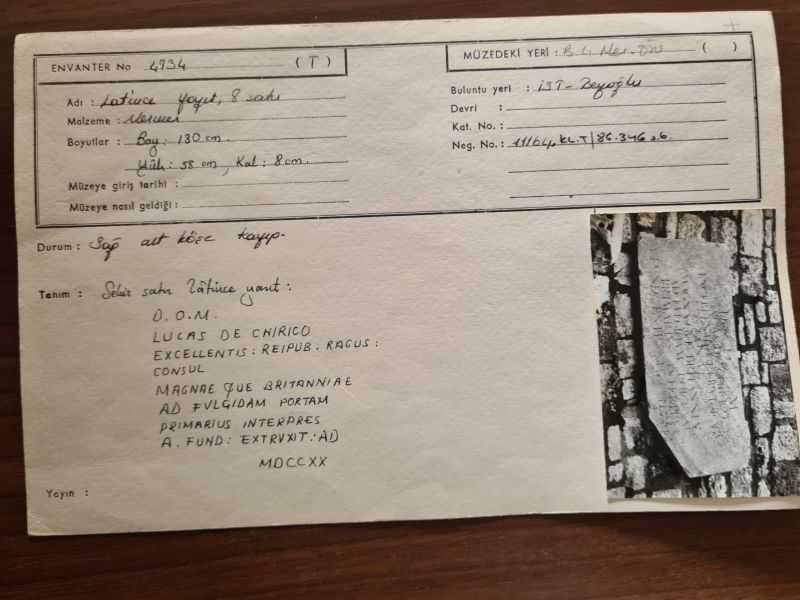 ENVANTER No 4934 (T)
MÜZEDEKİ YERİ : B 4 ( )
Adı : Latince Yazıt, 8 satır
Malzeme : Mermer
Boyutlar : Boy : 130 cm.
Yük : 58 cm, Kal : 8 cm.
Müzeye giriş tarihi :
Müzeye nasıl geldiği :
Buluntu yeri : İST - Beyoğlu
Devri :
Kat. No. :
Neg. No. : 11164, KL.T/86.346 s.6.
Durum : Sağ alt köşe kayıp.
Tanım : Sekiz satır Lâtince yazıt :
D. O. M.
LUCAS DE CHIRICO
EXCELLENTIS : REIPUB : RAGUS :
CONSUL
MAGNAE QUE BRITANNIAE
AD FVLGIDAM PORTAM
PRIMARIUS INTERPRES
A. FUND : EXTRVXIT : AD
MDCCXX
Yayın :